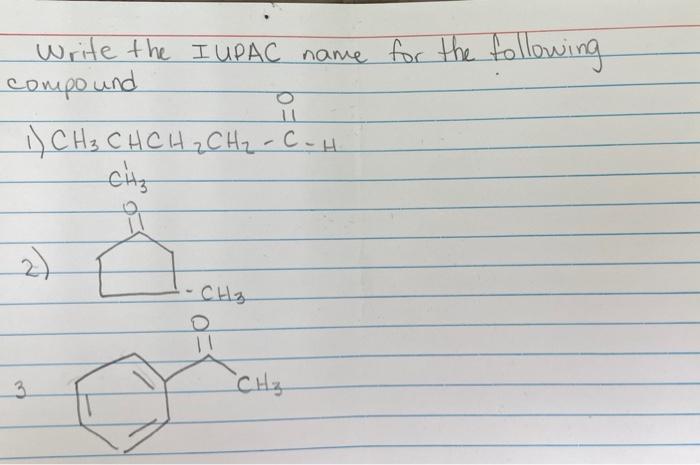 Write the IUPAC name for the following
compound
O
1) CH3 CHCH2CH2 - C - H
CH3
O
2)
- CH3
O
3
CH3